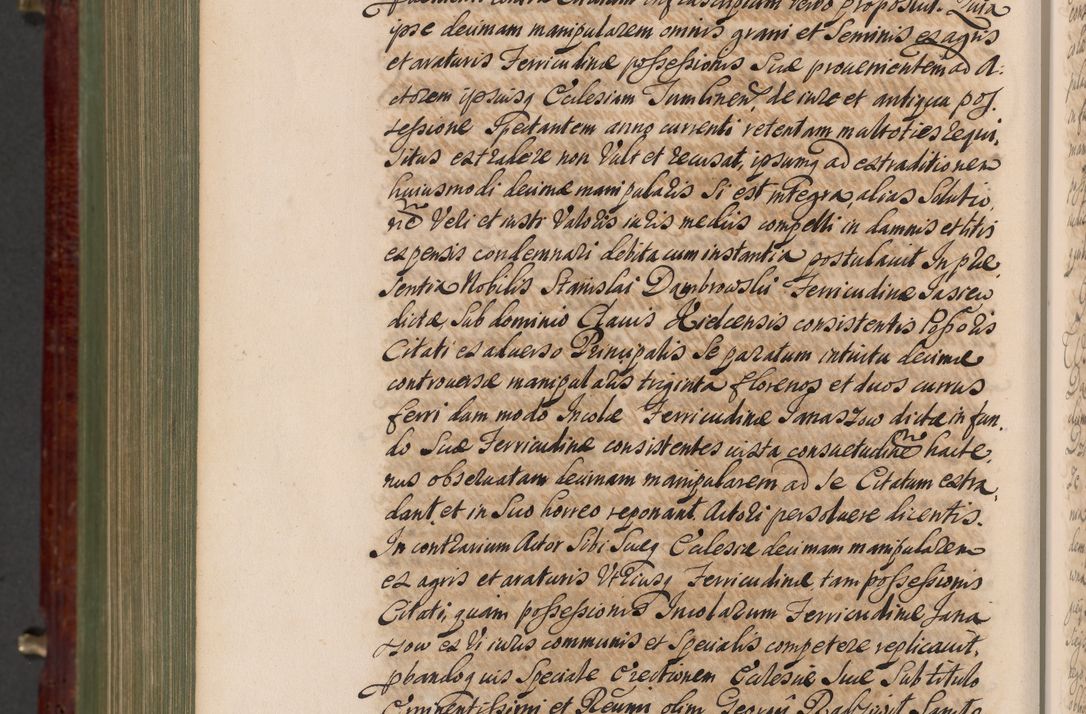 ipse decimam manipularem omnis grani et Seminis ex agris
et araturis Ferricudinæ possessionis Suæ provenientem ad A-
ctorem ipsiusq Ecclesiam Tumlinen. de iure et antiqua pos-
sessione Spectantem anno currenti retentam multoties requi-
situs extradere non Vult et recusat, ipsumq ad extraditionem
huiusmodi decimæ manipularis Si est integra, alias Solutio-
nē Veri et iusti Valoris iuris mediis compelli in damnis et litis
expensis condemnari debita cum instantia postulavit In præ-
sentia Nobilis Stanislai Dambrowski Ferricudinæ Jasiew
dictæ, Sub dominio Clavis Kielcensis consistentis
Citati ex adverso Principalis Se paratum intuitu decimæ
controversæ manipularis triginta florenos et duos currus
ferri dam modo Incolæ Ferricudinæ Janaszow dictæ in fun-
do Suæ Ferricudinæ consistentes iuxta consuetudinē hacte-
nus observatam decimam manipularem ad Se Citatum extra-
dant, et in Suo horreo reponant. Actori persolvere dicentis.
In contrarium Actor Sibi Suæq Ecclesiæ decimam manipularem
ex agris et araturis Utriusq Ferricudinæ, tam possessionis
Citati, quam possessionis Incolarum Ferricudinæ Jana-
szow ex Vi iuris communis et Specialis competere replicavit,
pbandoq ius Speciale Erectionem Ecclesiæ Suæ Sub titulo
Eminentissimi et Reumi olim Georgii Radzivit Sancto